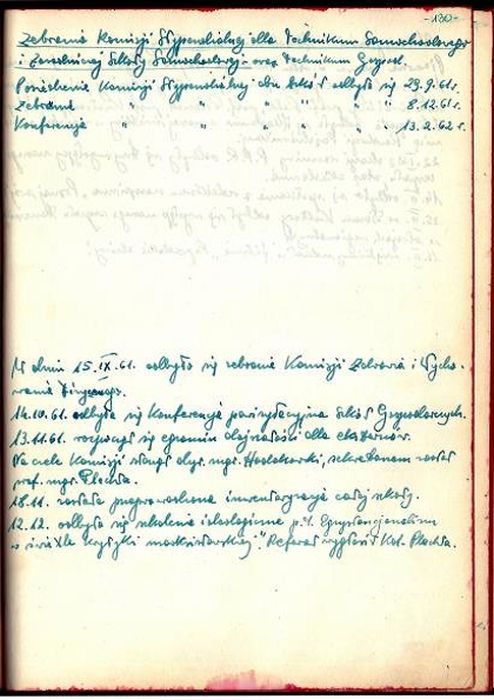 -130-
Zebranie Komisji Stypendialnej dla Technikum Samochodowego
i Zasadniczej Szkoły Samochodowej - oraz Technikum Gospod.
Posiedzenie Komisji Stypendialnej dla Szkół odbyło się 29.9.61 r.
Zebranie " " " " " 8.12.61 r.
Konferencja " " " " " 13.2.62 r.
W dniu 15.IX.61. odbyło się zebranie Komisji Zdrowia i Wycho-
wania Fizycznego.
14.10.61. odbyła się Konferencja powizytacyjna Szkół Gospodarczych.
13.11.61. rozpoczął się egzamin dojrzałości dla eksternów.
Na czele Komisji stanął dyr. mgr. sekretarzem został
prof. mgr. Plachta.
18.11. została przeprowadzona inwentaryzacja całej szkoły.
12.12. odbyło się szkolenie ideologiczne p.t. Egzystencjonalizm
w świetle krytyki marksistowskiej". Referat wygłosił Kol. Plachta.